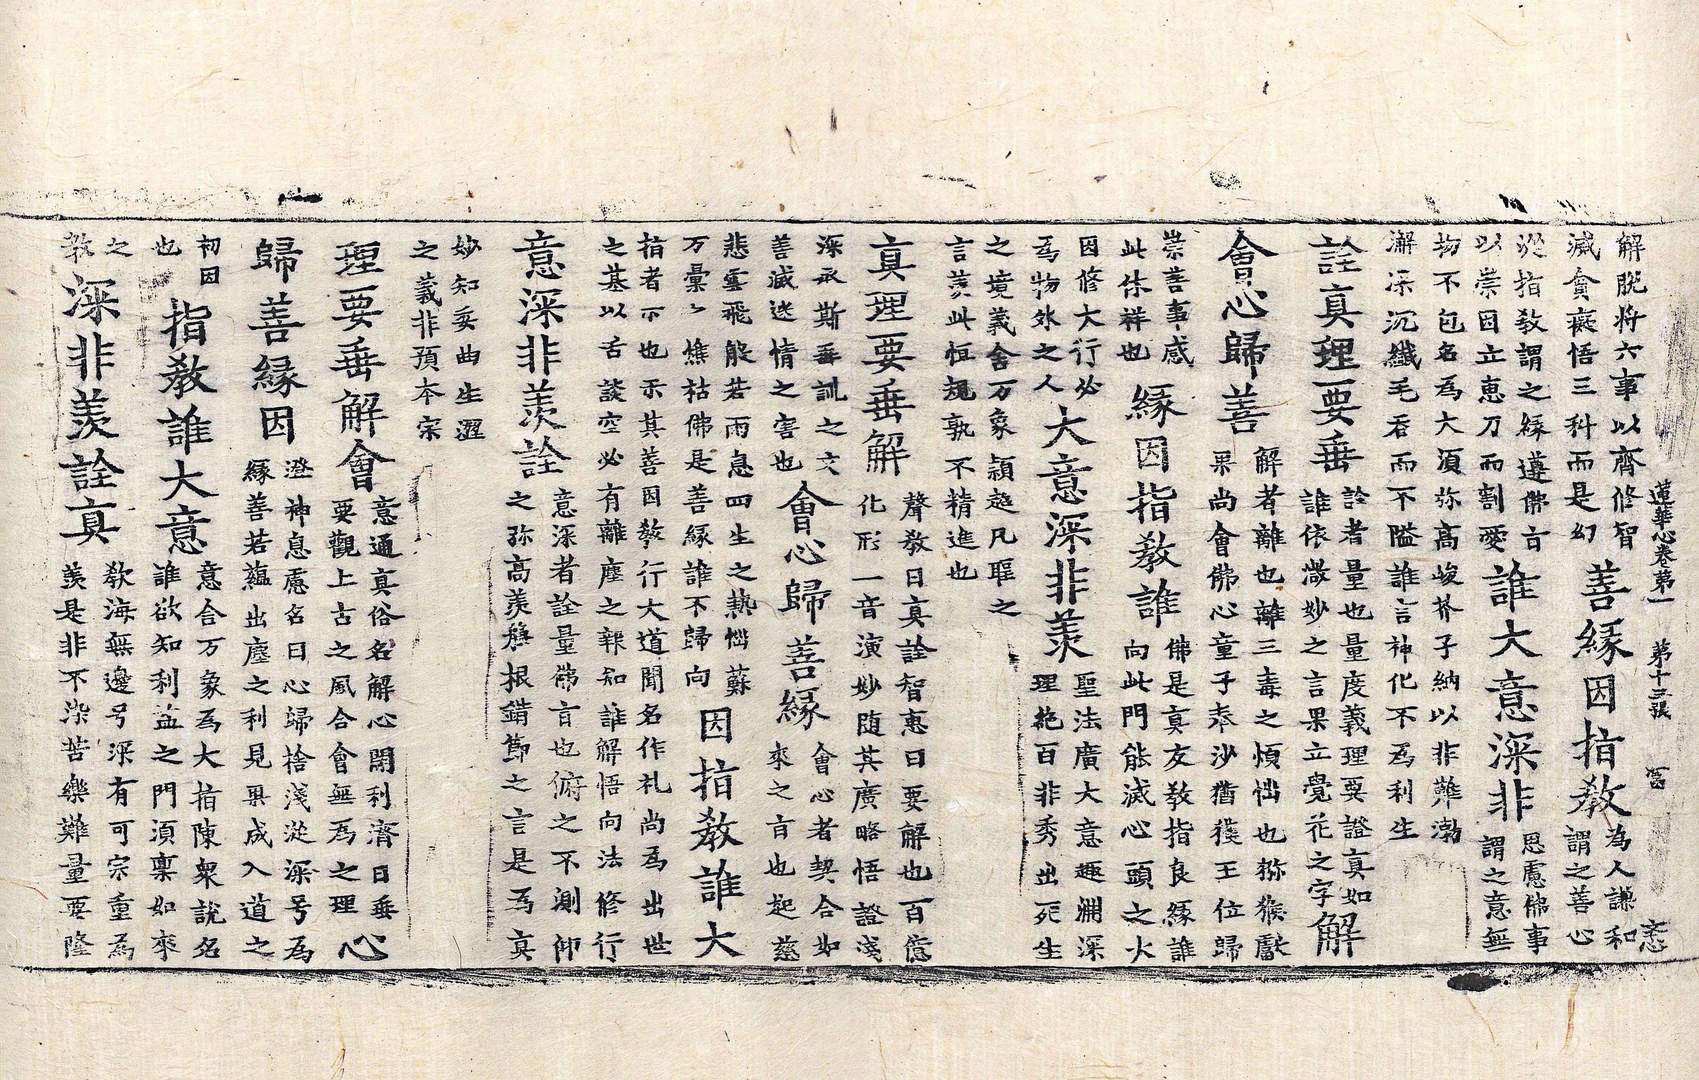 蓮華心卷第一 第十三張
解脫將六事以齊修智
滅貪癡悟三科而是幻
善緣因指教
為人謙和
謂之善心
從指教謂之緣遵佛言
以崇因立惠刀而割愛
誰大意深非
思慮佛事
謂之意無
物不包名為大須弥高峻芥子納以非難渤
澥深沉纖毛吞而不隘誰言神化不為利生
詮真理要垂
詮者量也量度義理要證真如
誰依微妙之言果立覺花之字
解
會心歸善
解者離也離三毒之煩惱也猕猴獻
果尚會佛心童子奉沙猶獲王位歸
崇善事感
此休祥也
緣因指教誰
佛是真友教指良緣誰
向此門能滅心頭之火
因修大行必
為物外之人
大意深非羨
聖法廣大意趣淵深
理絶百非秀出死生
之境義含万象頴越凡聖之
言羨此恒規孰不精進也
真理要垂解
聲教曰真詮智惠曰要解也百億
化形一音演妙随其廣略悟證淺
深承斯垂訓之文
善滅迷情之害也
會心歸善緣
會心者契合如
來之言也起慈
悲雲飛般若雨息四生之熱惱蘇
万彙々燋枯佛是善緣誰不歸向
因指教誰大
指者示也示其善因教行大道聞名作礼尚為出世
之基以舌談空必有離塵之報知誰解悟向法修行
意深非羨詮
意深者詮量佛言也俯之不測仰
之弥高羨盤根錯節之言是為真
妙知委曲生涯
之義非預本宗
理要垂解會
意通真俗名解心閑利濟曰垂
要觀上古之風合會無為之理
心
歸善緣因
澄神息慮名曰心歸捨淺從深号為
緣善若蘊出塵之利見果成入道之
初因
也
指教誰大意
意含万象為大指陳衆說名
誰欲知利益之門須稟如來
之
教
深非羨詮真
教海無邊号深有可宗重為
羨是非不染苦樂難量要隆